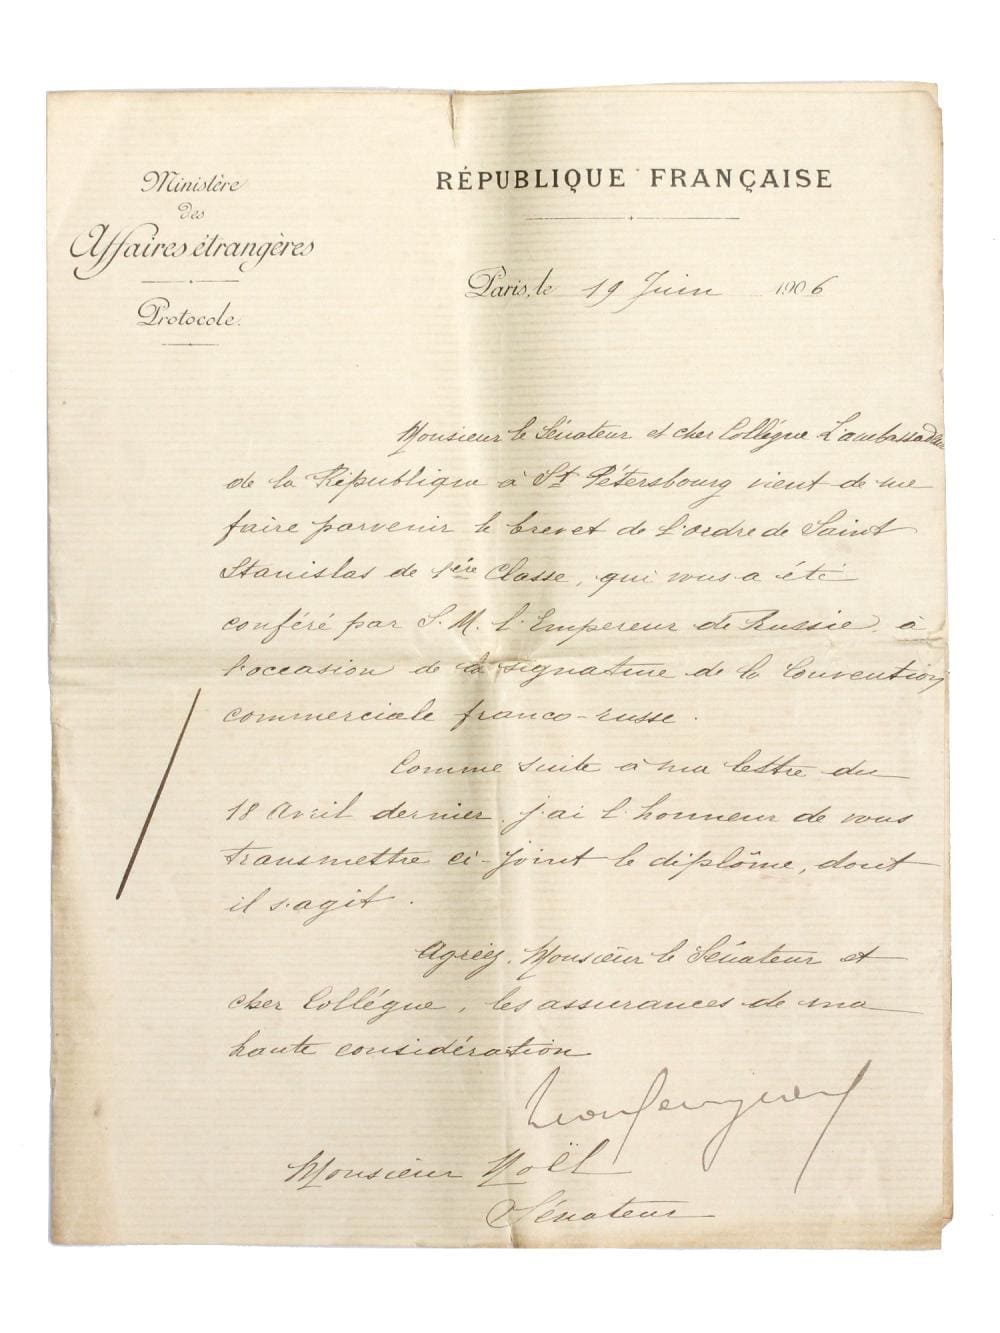 Ministère
des
Affaires étrangères
Protocole.
RÉPUBLIQUE FRANÇAISE
Paris, le 19 Juin 1906
Monsieur le Sénateur et cher Collégue L'ambassadeur
de la République à St Pétersbourg vient de me
faire parvenir le brevet de l'ordre de Saint
Stanislas de 1ére Classe, qui vous a été
conféré par S. M. l'Empereur de Russie, à
l'occasion de la signature de la Convention
commerciale franco-russe.
Comme suite à ma lettre du
18 Avril dernier, j'ai l'honneur de vous
transmettre ci-joint le diplôme, dont
il s'agit.
Agréez, Monsieur le Sénateur et
cher Collégue, les assurances de ma
haute considération
Monsieur Noël
Sénateur